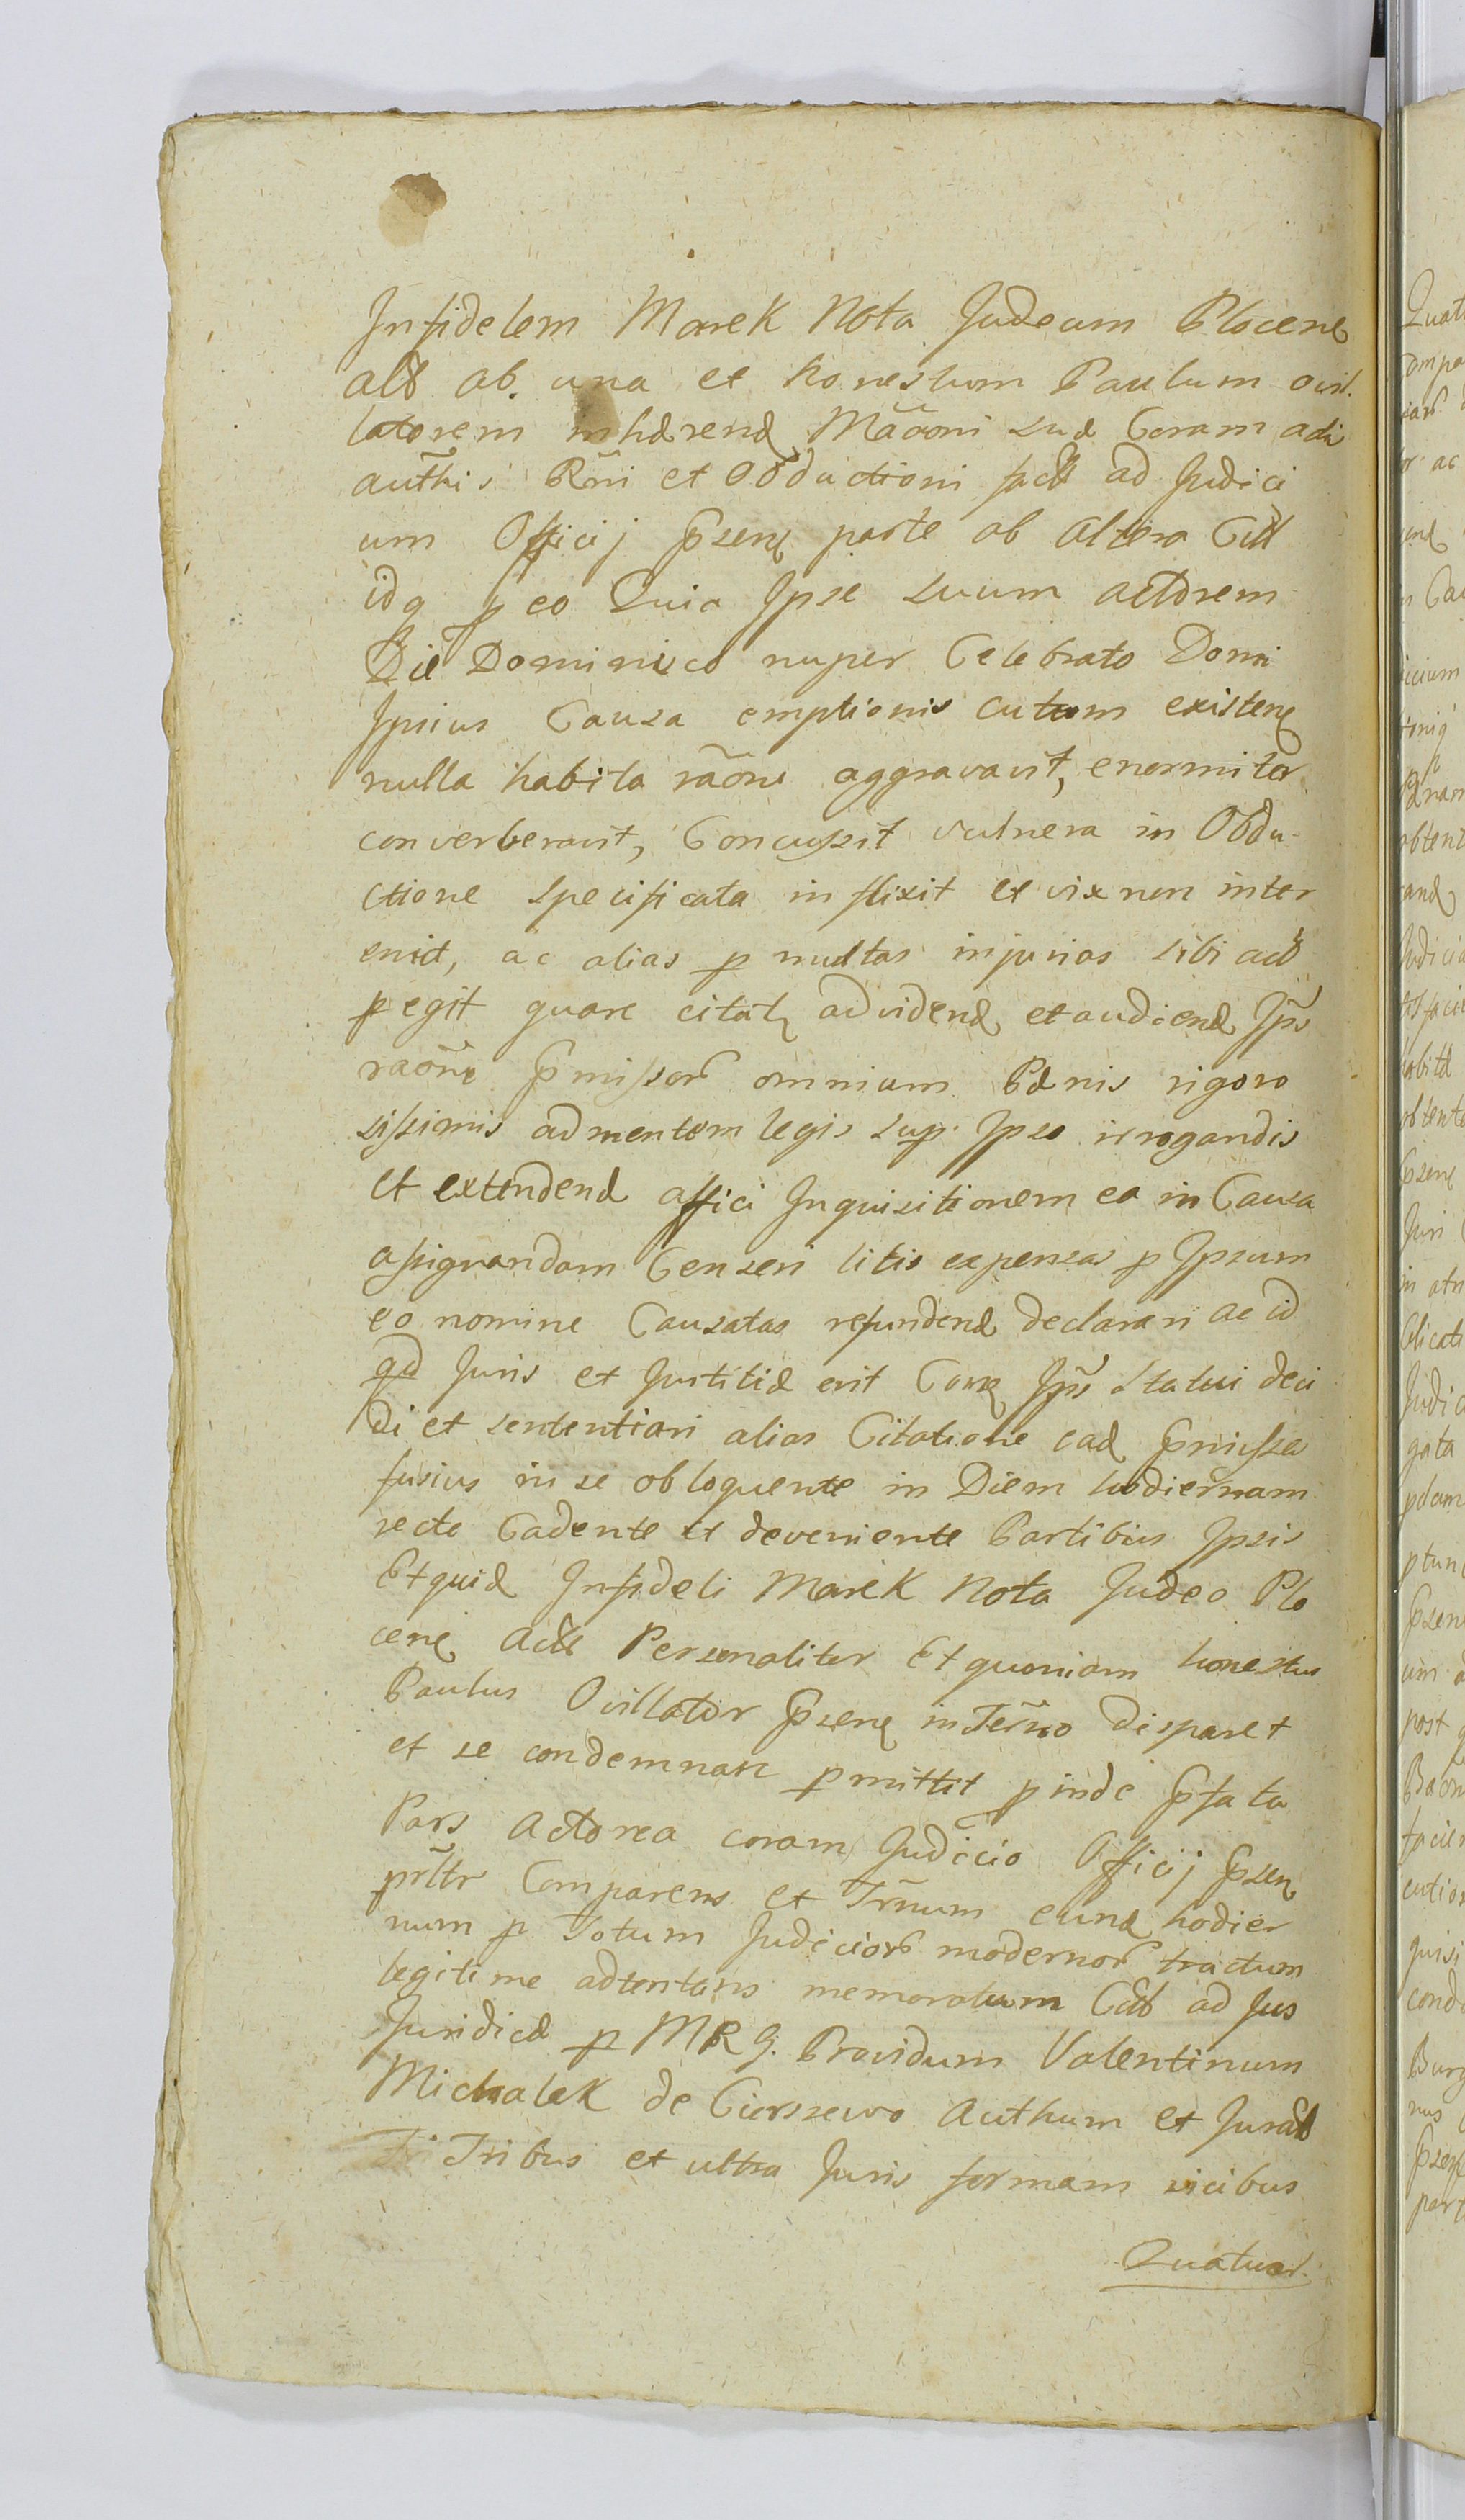 Infidelem Marek Nota Judeum Plocen
act ab una et honestum Paulum ovil
latorem inhærend Mãõni suæ Coram actis
auth̃is Rñi et Obductioni fact ad Judici
um Officij p̃sen parte ab altera Citt
idq p eo Quia Ipse suum actorem
Die Dominico nuper Celebrato Domi
Ipsius Causa emptionis cutum existen
nulla habita rãõne aggravavit, enormiter
converberavit, Concussit vulnera in Obdu
ctione specificata inflixit et vix non inter
emit, ac alias p multas injurias sibi act
pegit quare citat ad vidend et audiend Ip̃s
raõne p̃missor omnium Pænis rigoro
sissimis ad mentem legis sup Ipso irrogandis
et extendend affici Inquisitionem ea in Causa
assignandam Censeri litis expensas p Ipsum
eo nomine Causatas refundend declarari ac id
qd Juris et Justitiæ erit Coñ Ip̃s Statui deci
di et sententiari alias Citatione ead p̃missa
fusius in se obloquente in Diem hodiernam
recte Cadente et deveniente Partibus Ipsis
Et quid Infideli Marek Nota Judeo Plo
cen Act Personaliter Et quoniam honestus
Paulus Ovillator p̃sen in Ter̃no disparet
et se condemnari pmittit pinde p̃fata
Pars Actorea coram Judicio Officij p̃sen
pr̃ltr Comparens et Tr̃num eund hodier
num p Totum Judicior modernor tractum
legitime adtentans memoratum Citt ad Jus
Juridice p MRG. Providum Valentinum
Michalek de Cierszewo Authum et Jurat
Tribus et ultra Juris formam vicibus
Quatuor
Quat
ompa
ac
Cau
icium
obtent
and
Judicia
habita
obtent
p̃sen
Juri
in
Judic
gata
ptun
um
post
facien
quisi
cond
Burg
nus
p̃sen
par